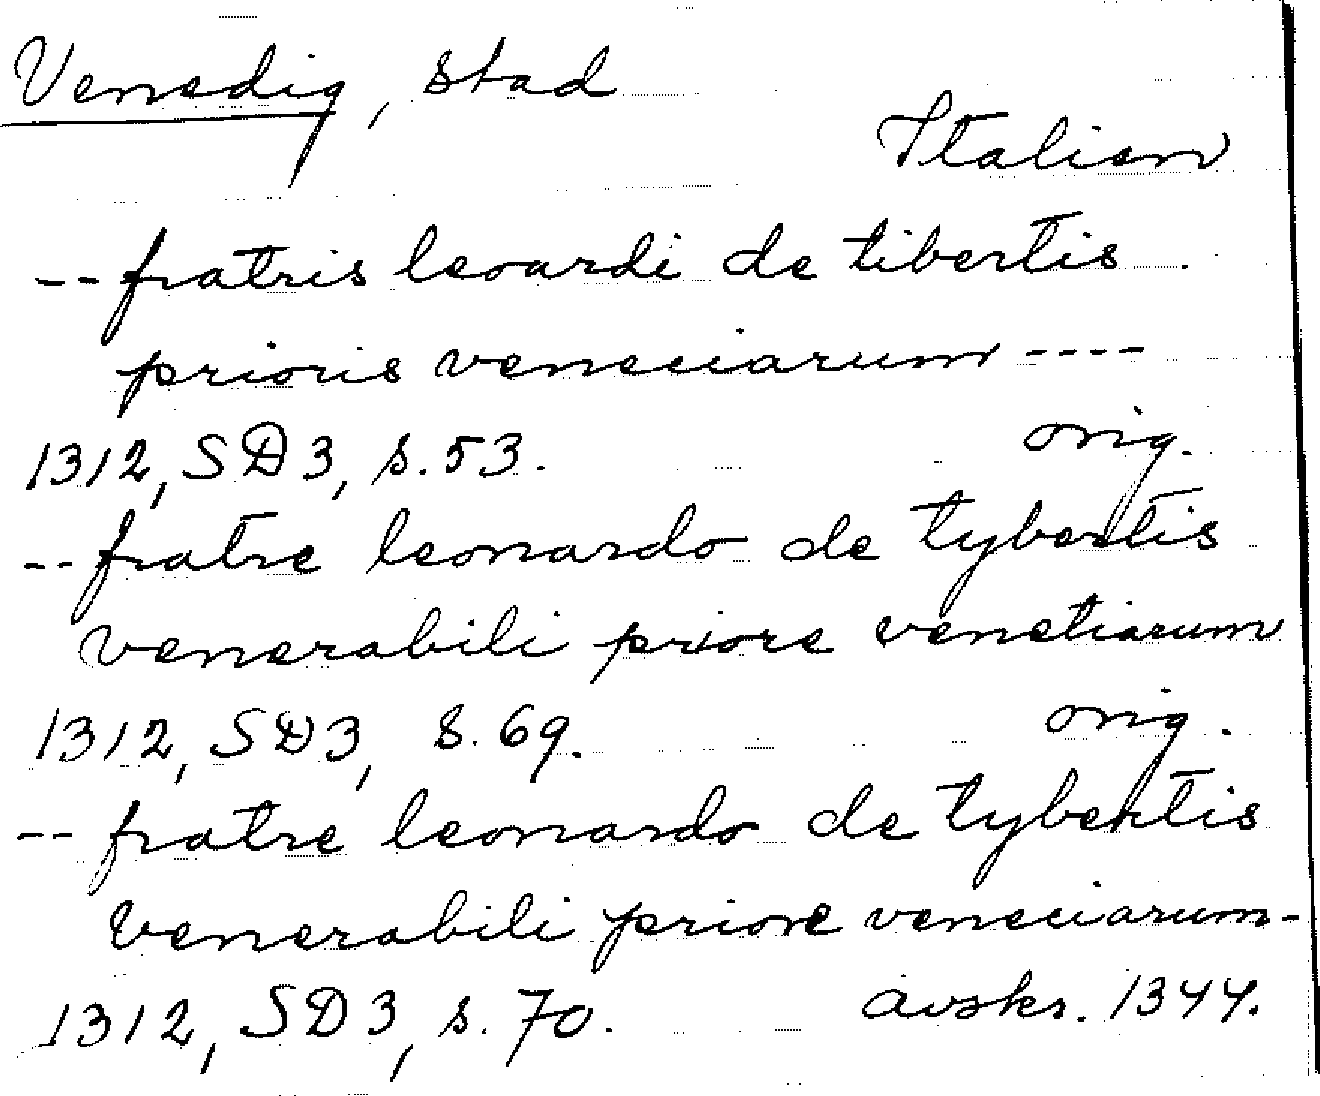 Venedig, stad
Italien
-- fratris leoardi de tibertis
prioris veneciarum ----
1312, SD3, s. 53. orig.
-- fratre leonardo de tybertis
venerabili priore venetiarum
1312, SD3, s. 69. orig.
-- fratre leonardo de tybertis
venerabili priore veneciarum-
1312, SD3, s. 70. avskr. 1344.